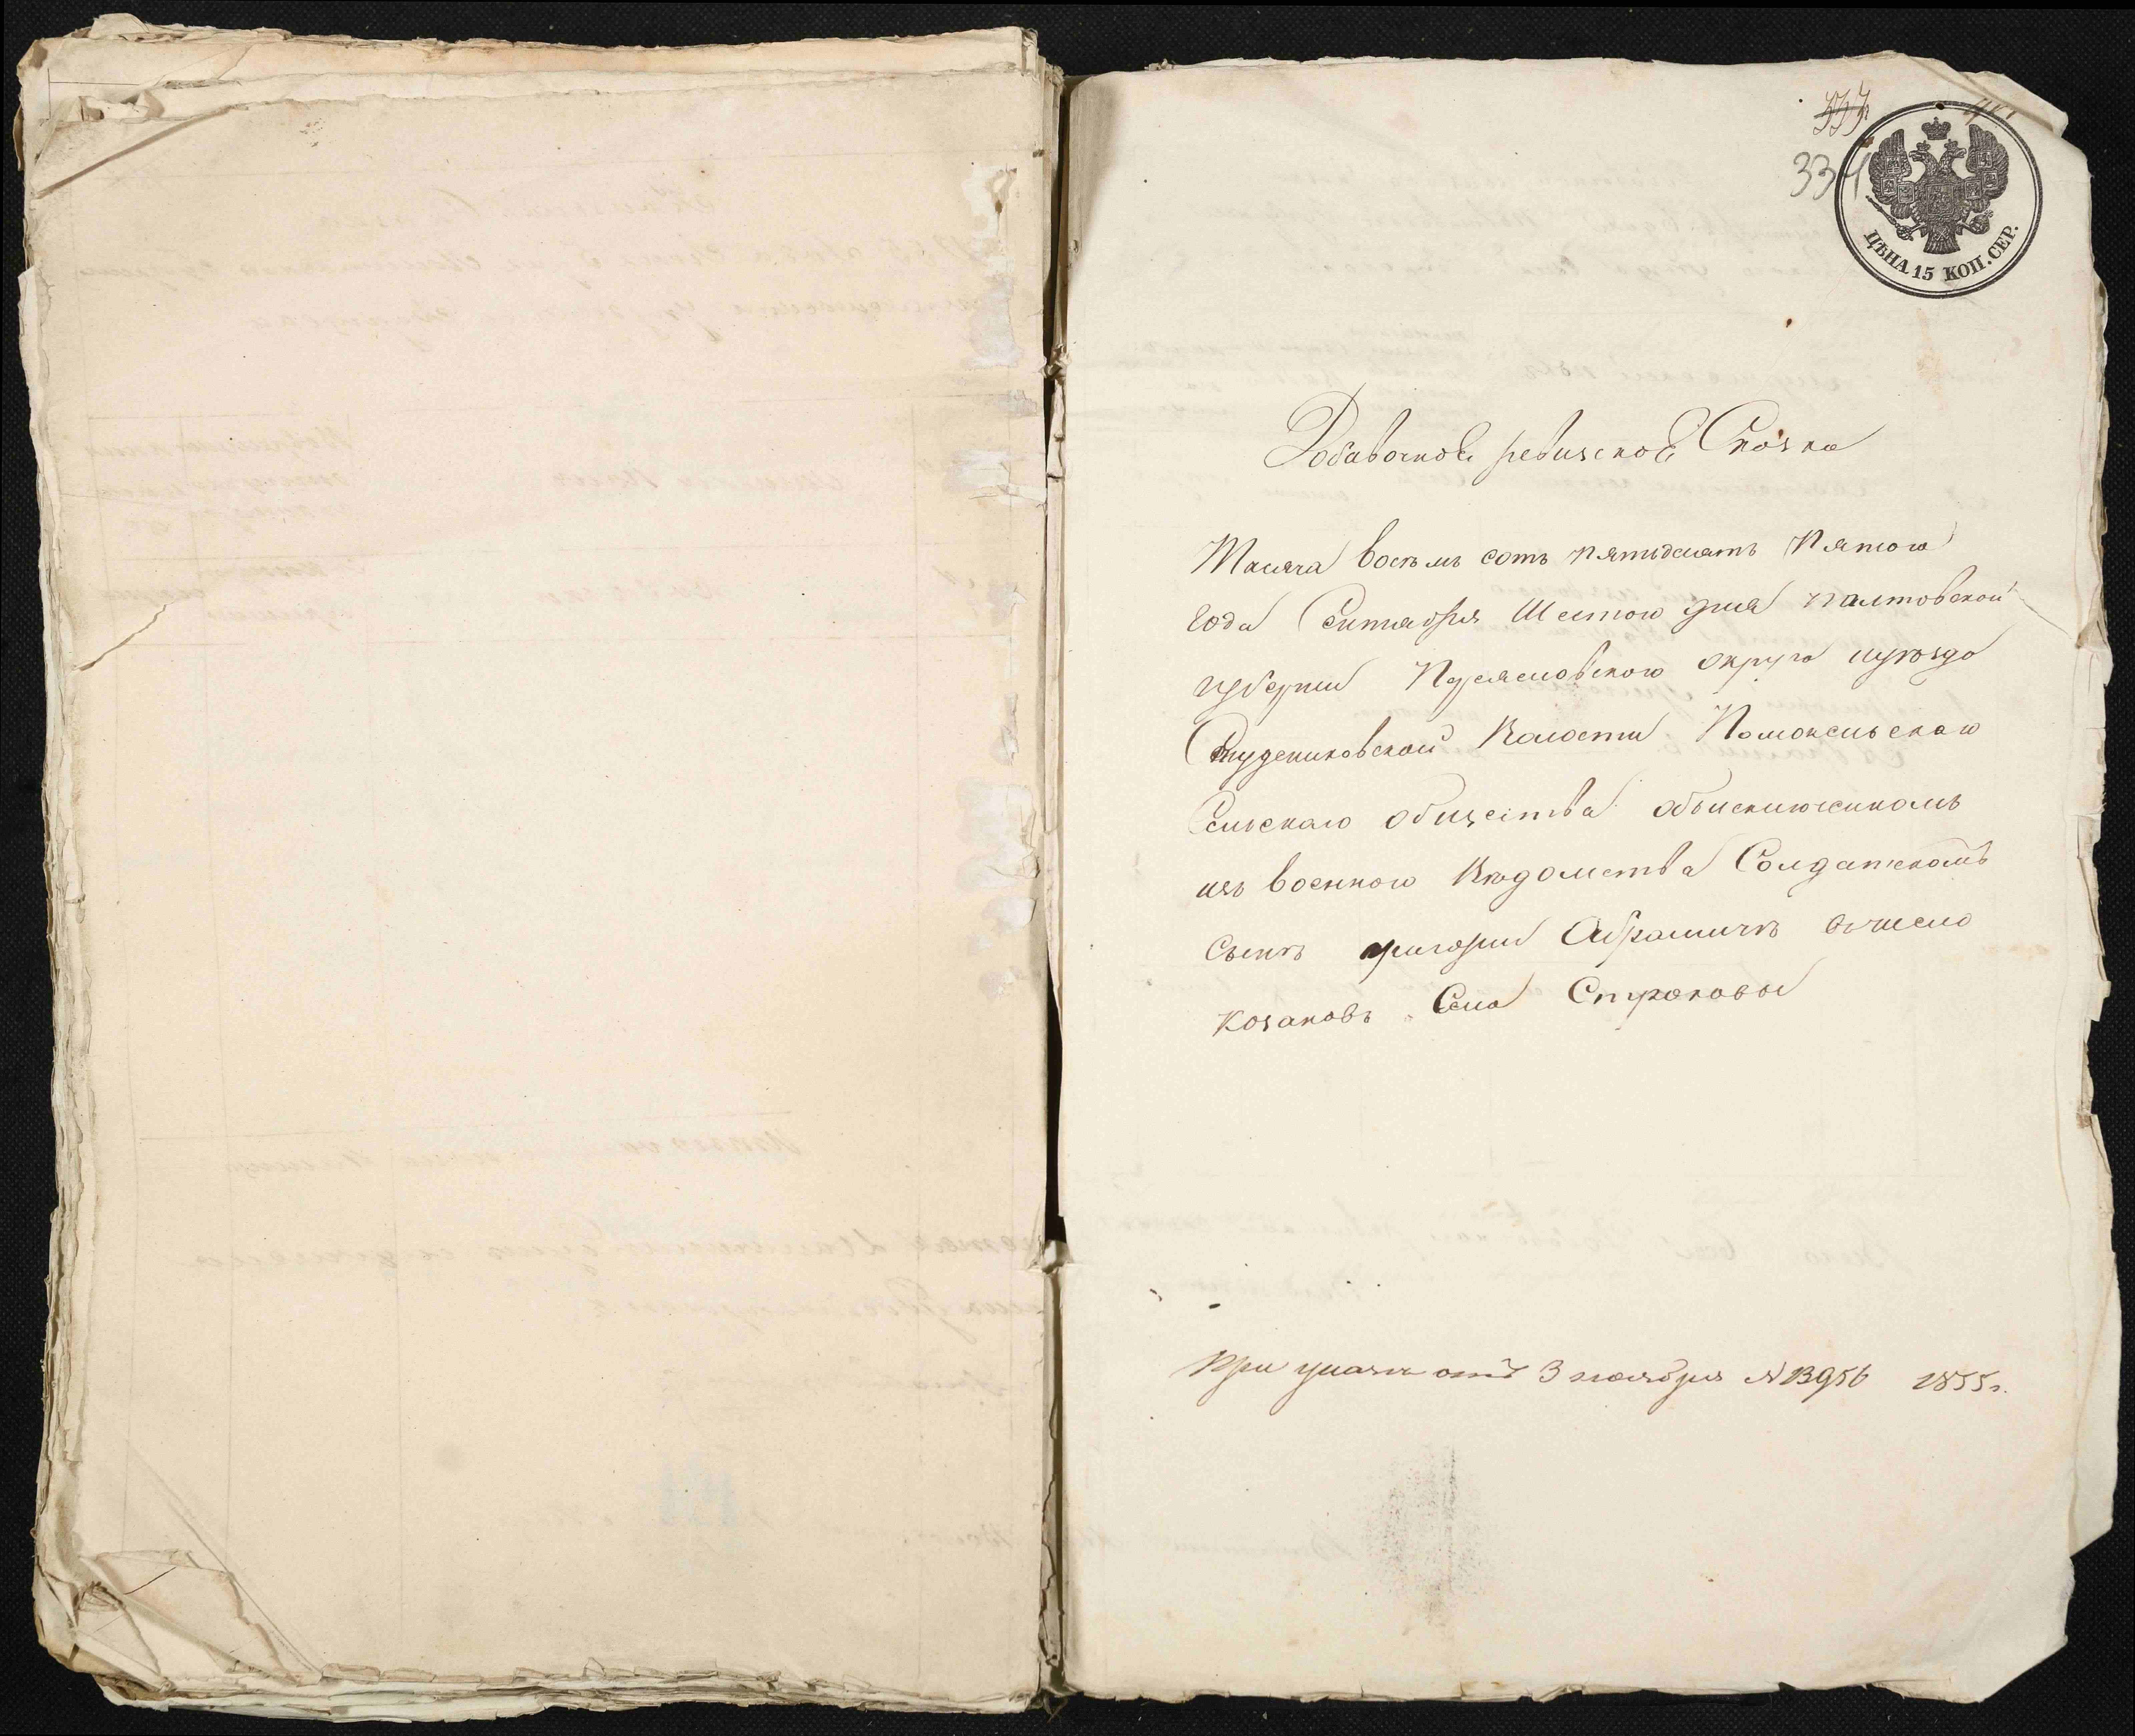 334
ЦѢНА 15 КОП. СЕР.
Добавочноѣ ревизскоѣ Сказка
Тысяча восѣмъ сотъ пятьдесятъ Пятого
года Сентября Шестого дня палтовской
губернии Переясловского округа иуѣзда
Студениковской Волости Помоклсьскаго
Сельскаго общества объисключеномъ
изъ военного Вѣдомства Солдатскомъ
сынѣ григории Абрамичѣ вчисло
козаковъ Села Строковы
При указѣ отъ 3 ноября № 13956 1855 г.